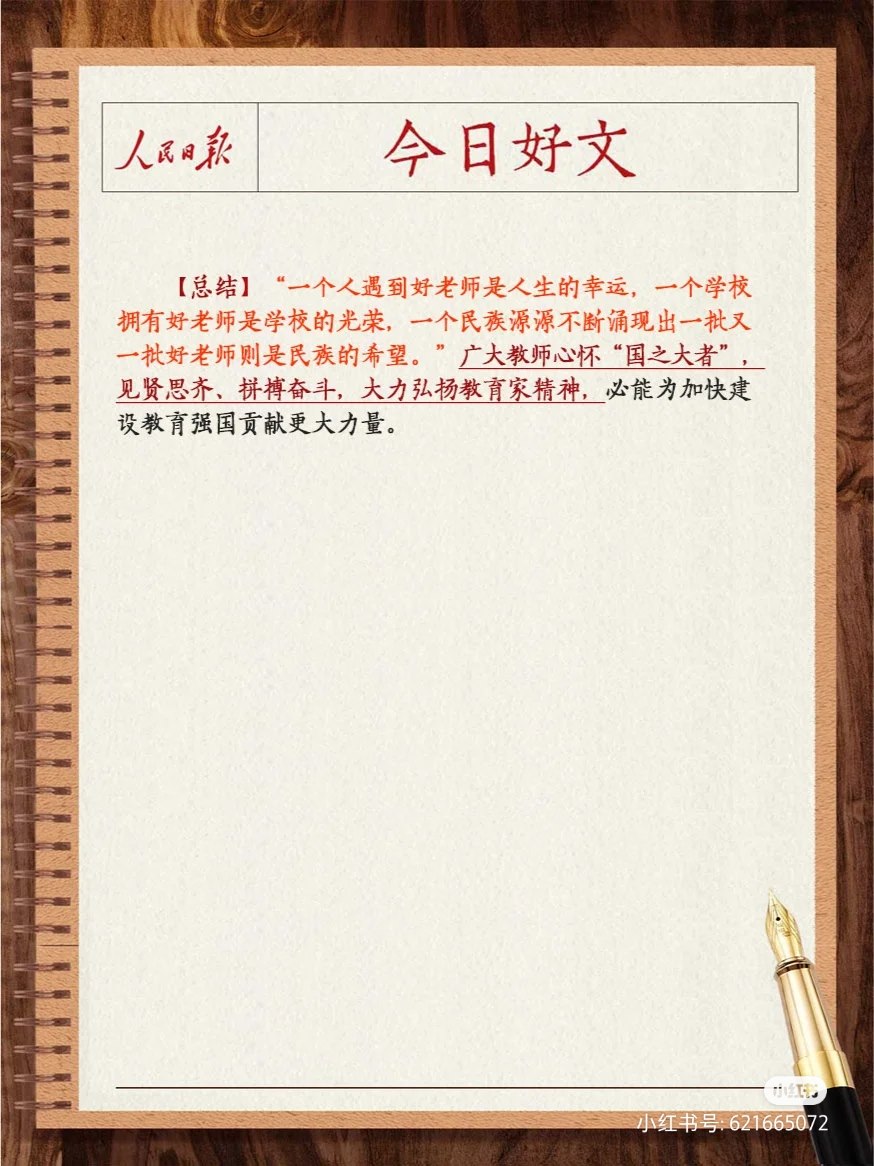 人民日报
今日好文
【总结】“一个人遇到好老师是人生的幸运，一个学校
拥有好老师是学校的光荣，一个民族源源不断涌现出一批又
一批好老师则是民族的希望。”广大教师心怀“国之大者”，
见贤思齐、拼搏奋斗，大力弘扬教育家精神，必能为加快建
设教育强国贡献更大力量。
小红书
小红书号: 621665072